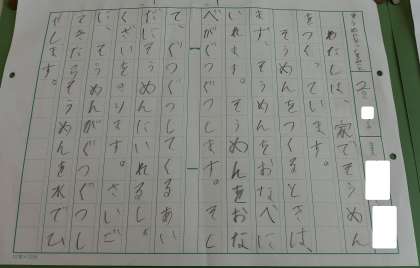 わたしは、家でそうめん
をつくっています。
そうめんをつくるときは、
まず、そうめんをおなべに
いれます。そうめんをおな
べがぐつぐつします。そし
て、ぐつぐつしてくるあい
だにそうめんにいれるし
くざいをきります。さいご
に、そうめんがぐつぐつし
てきたらそうめんを水でひ
やします。